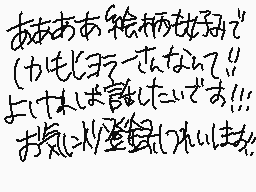 ああああ絵柄も好みで
しかもじヨラーさんなんて!!
よければ話したいです!!!
お気に入り登録しつれいします!!